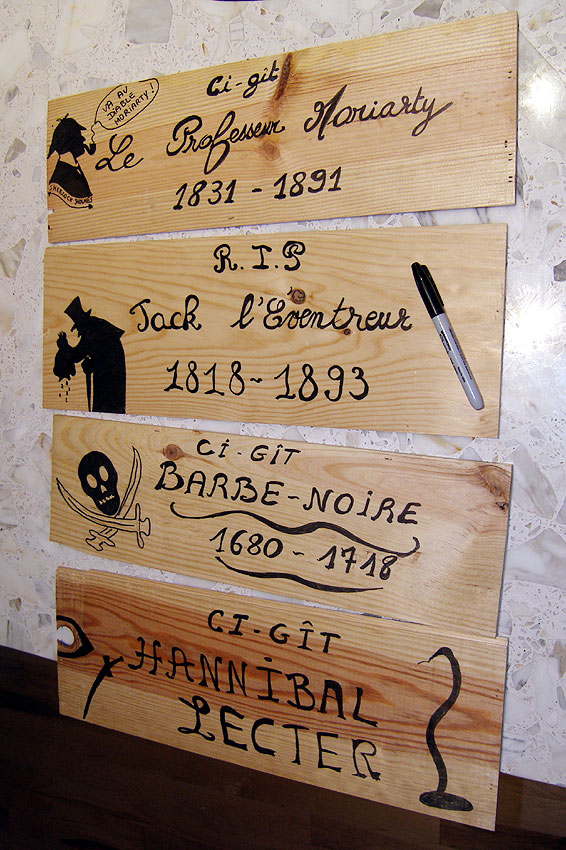 Ci-gît
VA AU
DIABLE
MORIARTY !
Le Professeur Moriarty
SHERLOCK HOLMES
1831 - 1891
R.I.P
Jack l'Eventreur
1818 - 1893
CI-GÎT
BARBE-NOIRE
1680 - 1718
CI-GÎT
HANNIBAL
LECTER